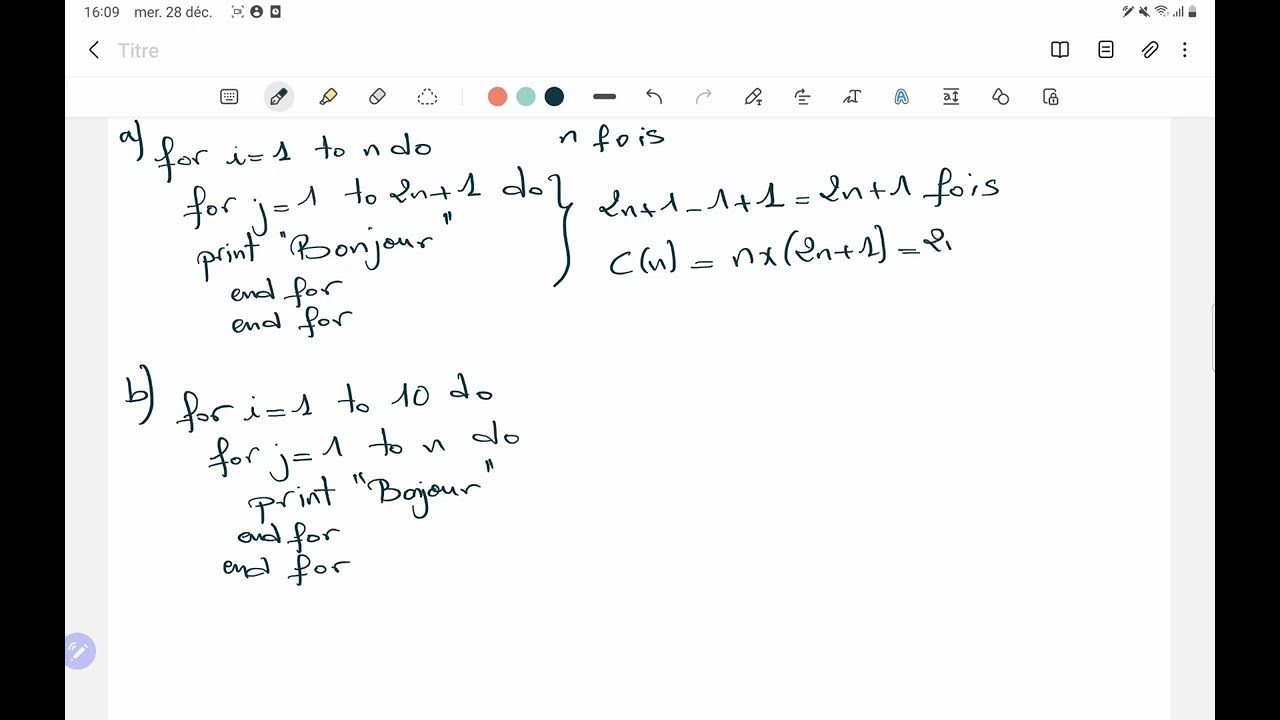 16:09 mer. 28 déc.
Titre
a) for i=1 to n do n fois
for j=1 to 2n+1 do 2n+1-1+1=2n+1 fois
print "Bonjour" C(n) = n×(2n+1)=2
end for
end for
b) for i=1 to 10 do
for j=1 to n do
print "Bojour"
end for
end for